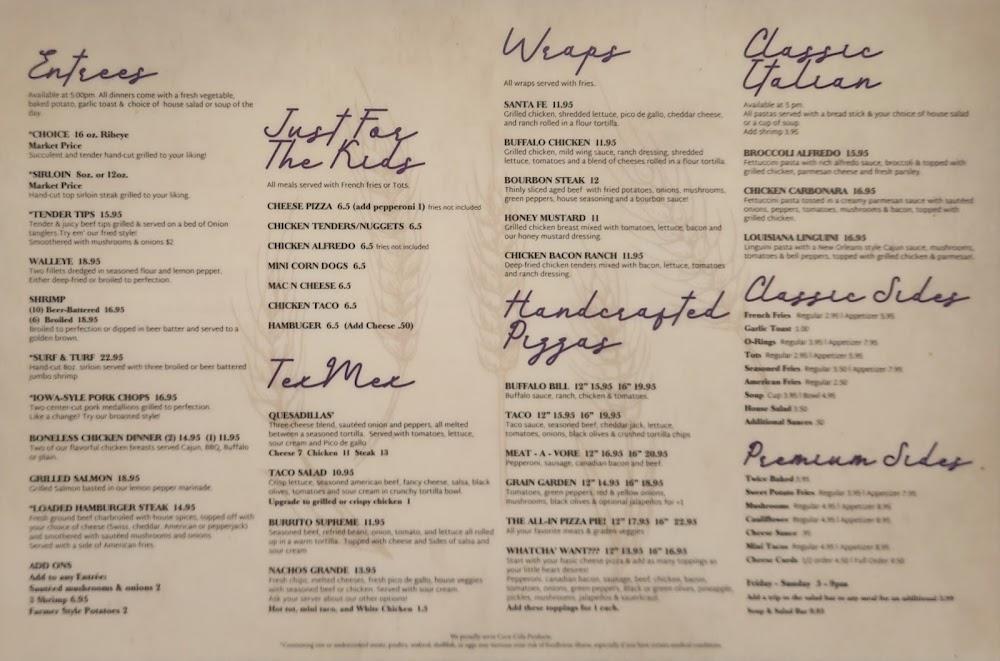 Entrees
Available at 5:00pm. All dinners come with a fresh vegetable,
baked potato, garlic toast & choice of house salad or soup of the
day.
*CHOICE 16 oz. Ribeye
Market Price
Succulent and tender hand-cut grilled to your liking!
*SIRLOIN 8oz. or 12oz.
Market Price
Hand-cut top sirloin steak grilled to your liking.
*TENDER TIPS 15.95
Tender & juicy beef tips grilled & served on a bed of Onion
tanglers. Try em' our fried style!
Smoothered with mushrooms & onions $2
WALLEYE 18.95
Two fillets dredged in seasoned flour and lemon pepper.
Either deep-fried or broiled to perfection.
SHRIMP
(10) Beer-Battered 16.95
(6) Broiled 18.95
Broiled to perfection or dipped in beer batter and served to a
golden brown.
*SURF & TURF 22.95
Hand-cut 8oz. sirloin served with three broiled or beer battered
jumbo shrimp
*IOWA-SYLE PORK CHOPS 16.95
Two center-cut pork medallions grilled to perfection.
Like a change? Try our broasted style!
BONELESS CHICKEN DINNER (2) 14.95 (1) 11.95
Two of our flavorful chicken breasts served Cajun, BBQ, Buffalo
or plain.
GRILLED SALMON 18.95
Grilled Salmon basted in our lemon pepper marinade.
*LOADED HAMBURGER STEAK 14.95
Fresh ground beef charbroiled with house spices, topped off with
your choice of cheese (Swiss, cheddar, American or pepperjack)
and smothered with sautéed mushrooms and onions
Served with a side of American fries.
ADD ONS
Add to any Entrée:
Sautéed mushrooms & onions 2
3 Shrimp 6.95
Farmer Style Potatoes 2
Just For
The Kids
All meals served with French fries or Tots.
CHEESE PIZZA 6.5 (add pepperoni 1) fries not included
CHICKEN TENDERS/NUGGETS 6.5
CHICKEN ALFREDO 6.5 fries not included
MINI CORN DOGS 6.5
MAC N CHEESE 6.5
CHICKEN TACO 6.5
HAMBUGER 6.5 (Add Cheese .50)
TexMex
QUESADILLAS'
Three-cheese blend, sautéed onion and peppers, all melted
between a seasoned tortilla. Served with tomatoes, lettuce,
sour cream and Pico de gallo
Cheese 7 Chicken 11 Steak 13
TACO SALAD 10.95
Crisp lettuce, seasoned american beef, fancy cheese, salsa, black
olives, tomatoes and sour cream in crunchy tortilla bowl.
Upgrade to grilled or crispy chicken 1
BURRITO SUPREME 11.95
Seasoned beef, refried beans, onion, tomato, and lettuce all rolled
up in a warm tortilla. Topped with cheese and Sides of salsa and
sour cream
NACHOS GRANDE 13.95
Fresh chips, melted cheeses, fresh pico de gallo, house veggies
with seasoned beef or chicken. Served with sour cream.
Ask your server about our other options!
Hot tot, mini taco, and White Chicken 1.5
Wraps
All wraps served with fries.
SANTA FE 11.95
Grilled chicken, shredded lettuce, pico de gallo, cheddar cheese,
and ranch rolled in a flour tortilla.
BUFFALO CHICKEN 11.95
Grilled chicken, mild wing sauce, ranch dressing, shredded
lettuce, tomatoes and a blend of cheeses rolled in a flour tortilla.
BOURBON STEAK 12
Thinly sliced aged beef with fried potatoes, onions, mushrooms,
green peppers, house seasoning and a bourbon sauce!
HONEY MUSTARD 11
Grilled chicken breast mixed with tomatoes, lettuce, bacon and
our honey mustard dressing.
CHICKEN BACON RANCH 11.95
Deep-fried chicken tenders mixed with bacon, lettuce, tomatoes
and ranch dressing.
Handcrafted
Pizzas
BUFFALO BILL 12" 15.95 16" 19.95
Buffalo sauce, ranch, chicken & tomatoes.
TACO 12" 15.95 16" 19.95
Taco sauce, seasoned beef, cheddar jack, lettuce,
tomatoes, onions, black olives & crushed tortilla chips
MEAT - A - VORE 12" 16.95 16" 20.95
Pepperoni, sausage, canadian bacon and beef.
GRAIN GARDEN 12" 14.95 16" 18.95
Tomatoes, green peppers, red & yellow onions,
mushrooms, black olives & optional jalapeños for +1
THE ALL-IN PIZZA PIE! 12" 17.95 16" 22.95
All your favorite meats & graden veggies
WHATCHA' WANT??? 12" 13.95 16" 16.95
Start with your basic cheese pizza & add as many toppings as
your little heart desires!
Pepperoni, canadian bacon, sausage, beef, chicken, bacon,
tomatoes, onions, green peppers, Black or green olives, pineapple,
pickles, mushrooms, jalapeños & sauerkraut.
Add these toppings for 1 each.
Classic
Italian
Available at 5 pm.
All pastas served with a bread stick & your choice of house salad
or a cup of soup.
Add shrimp 3.95
BROCCOLI ALFREDO 15.95
Fettuccini pasta with rich alfredo sauce, broccoli & topped with
grilled chicken, parmesan cheese and fresh parsley.
CHICKEN CARBONARA 16.95
Fettuccini pasta tossed in a creamy parmesan sauce with sautéed
onions, peppers, tomatoes, mushrooms & bacon, topped with
grilled chicken.
LOUISIANA LINGUINI 16.95
Linguini pasta with a New Orleans style Cajun sauce, mushrooms,
tomatoes & bell peppers, topped with grilled chicken & parmesan.
Classic Sides
French Fries Regular 2.95 | Appetizer 5.95
Garlic Toast 1.00
O-Rings Regular 3.95 | Appetizer 7.95
Tots Regular 2.95 | Appetizer 5.95
Seasoned Fries Regular 3.50 | Appetizer 7.95
American Fries Regular 2.50
Soup Cup 3.95 | Bowl 4.95
House Salad 3.50
Additional Sauces .50
Premium Sides
Twice Baked 3.95
Sweet Potato Fries Regular 3.95 | Appetizer 7.95
Mushrooms Regular 4.95 | Appetizer 8.95
Cauliflower Regular 4.95 | Appetizer 8.95
Cheese Sauce .95
Mini Tacos Regular 4.95 | Appetizer 8.95
Cheese Curds 1/2 order 4.50 | Full Order 8.50
Friday - Sunday 5 - 9pm
Add a trip to the salad bar to any meal for an additional 3.99
Soup & Salad Bar
We proudly serve Coca Cola Products.
*Consuming raw or undercooked meats, poultry, seafood, shellfish, or eggs may increase your risk of foodborne illness, especially if you have certain medical conditions.